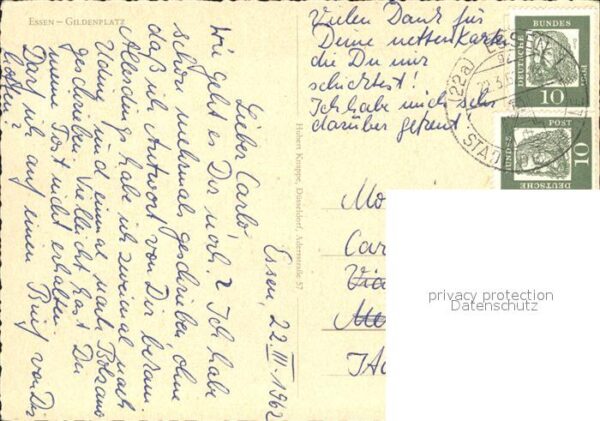 ESSEN – GILDENPLATZ
Essen, 22. III. 1962
Lieber Carlo!
Wie geht es Dir noch? Ich habe
schon mehrmals geschrieben ohne
daß ich Antwort von Dir bekam
Allerdings habe ich zweimal nach
und einmal nach Bolzano
geschrieben. Vielleicht hast Du
meine Post nicht erhalten.
Darf ich auf einen Brief von Dir
hoffen?
Hubert Knappe, Düsseldorf, Adersstraße 57
Vielen Dank für
Deine netten Karten
die Du mir
schicktest!
Ich habe mich sehr
darüber gefreut
DEUTSCHE BUNDES POST
10
DEUTSCHE BUNDES POST
10
(22a) ESSEN
Car
Via
privacy protection
Datenschutz